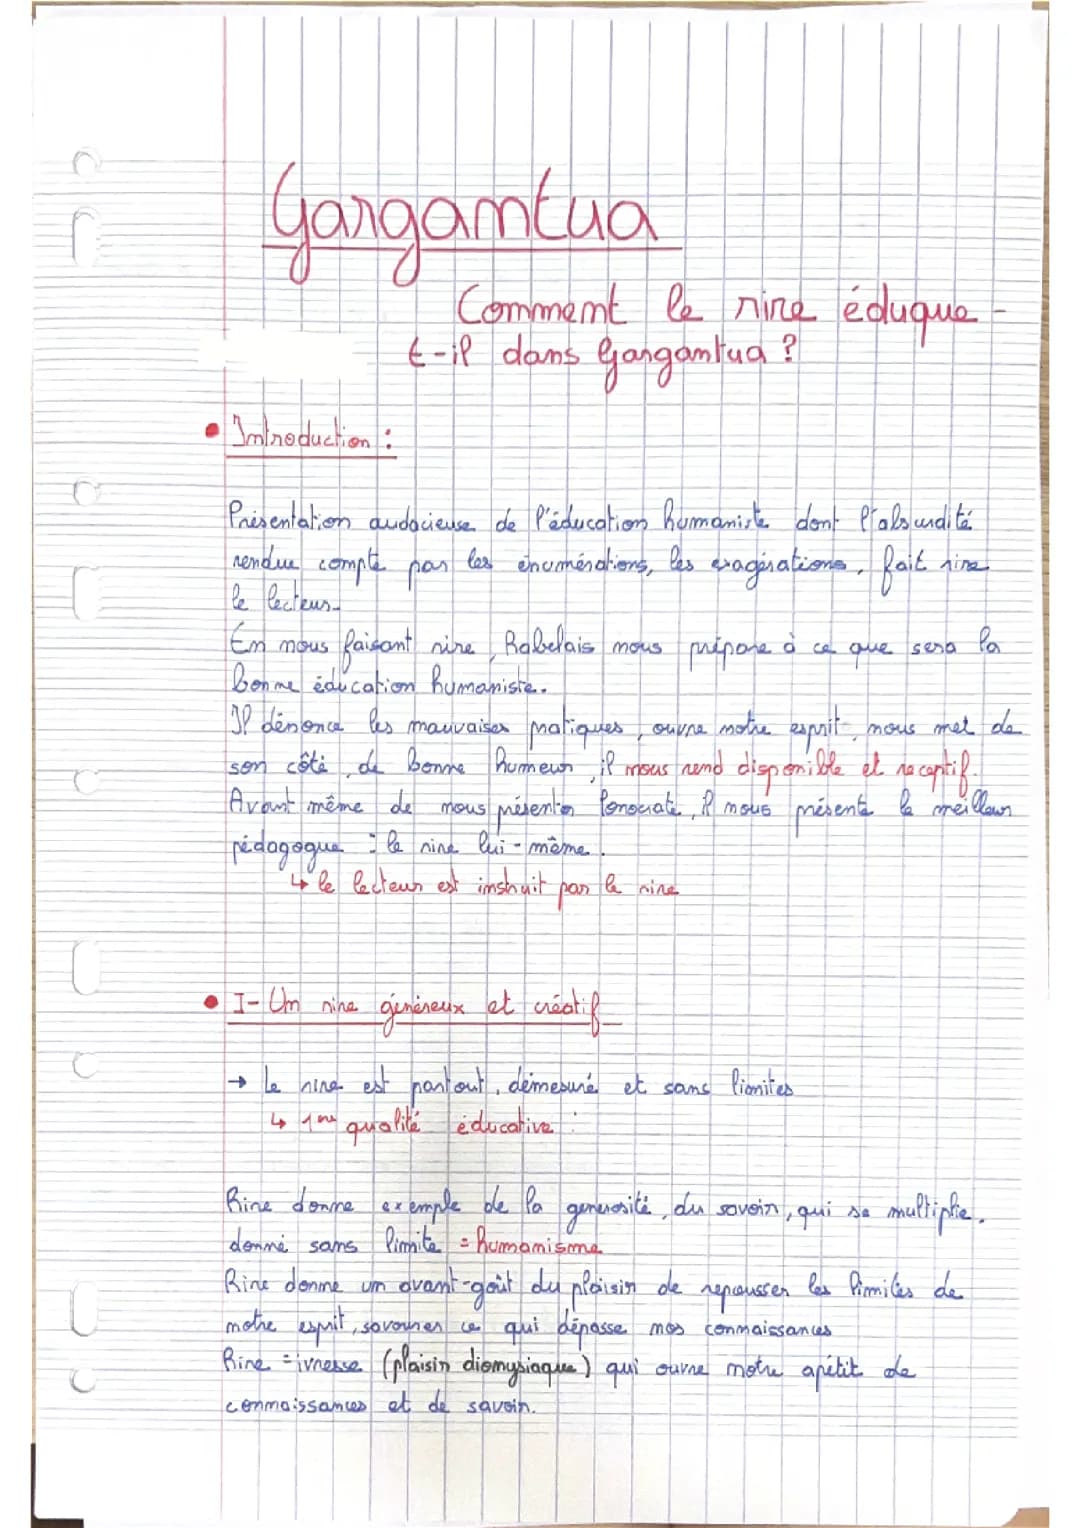 Gargantua
Comment le rire éduque-
t-il dans Gargantua ?
• Introduction :
Présentation audacieuse de l'éducation humaniste dont l'absurdité
rendue compte par les énumérations, les exagérations, fait rire
le lecteur.
En nous faisant rire, Rabelais nous prépare à ce que sera la
bonne éducation humaniste.
Il dénonce les mauvaises pratiques, ouvre notre esprit, nous met de
son côté, de bonne humeur, il nous rend disponible et réceptif.
Avant même de nous présenter Ponocrate, il nous présente le meilleur
pédagogue : le rire lui-même.
↳ le lecteur est instruit par le rire
• I- Un rire généreux et créatif
→ Le rire est partout, démesuré et sans limites
↳ 1ère qualité éducative :
Rire donne exemple de la generosité, du savoir, qui se multiplie,
donné sans limite = humanisme
Rire donne un avant-goût du plaisir de repousser les limites de
notre esprit, savourer ce qui dépasse nos connaissances
Rire = ivresse (plaisir dionysiaque) qui ouvre notre apétit de
connaissances et de savoir.